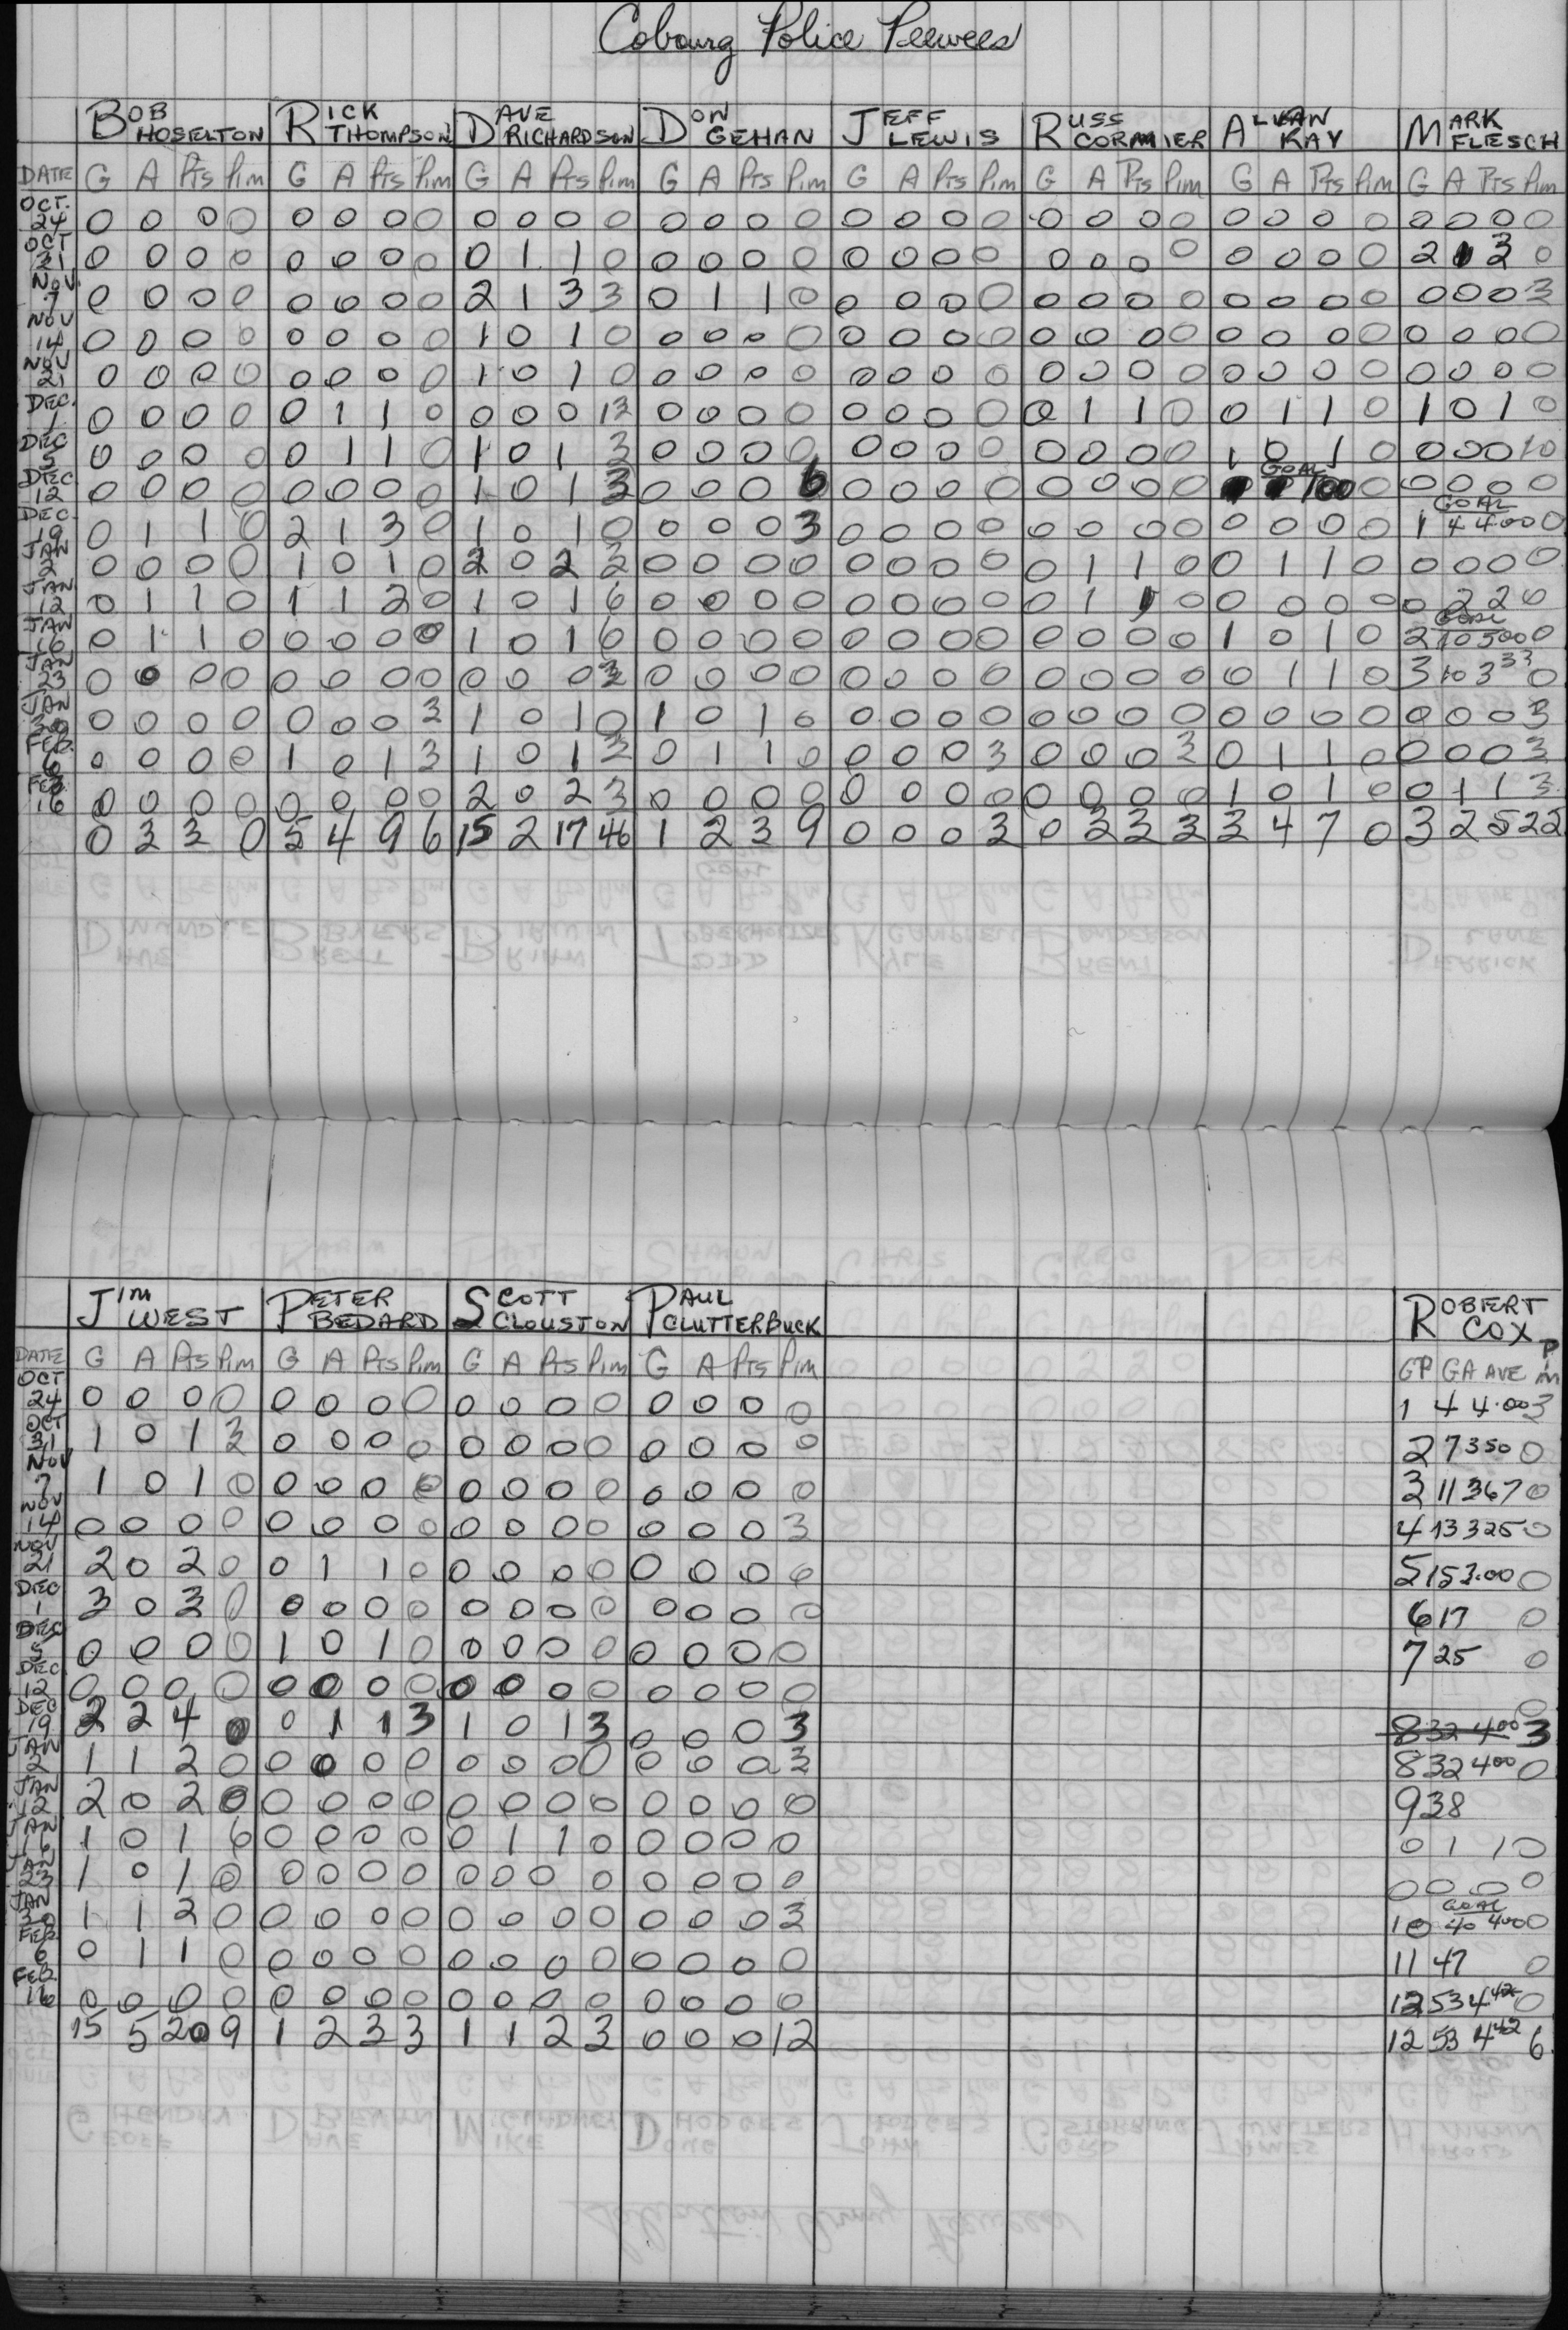 Cobourg Police Peewees
BOB HOSELTON RICK THOMPSON DAVE RICHARDSON DON GEHAN JEFF LEWIS RUSS CORMIER ALVAN KAY MARK FLESCH
DATE G A Pts Pim G A Pts Pim G A Pts Pim G A Pts Pim G A Pts Pim G A Pts Pim G A Pts Pim G A Pts Pim
OCT. 24 0 0 0 0 0 0 0 0 0 0 0 0 0 0 0 0 0 0 0 0 0 0 0 0 0 0 0 0 0 0 0 0
OCT 31 0 0 0 0 0 0 0 0 0 1 1 0 0 0 0 0 0 0 0 0 0 0 0 0 0 0 0 0 2 1 3 0
NOV. 7 0 0 0 0 0 0 0 0 2 1 3 3 0 1 1 0 0 0 0 0 0 0 0 0 0 0 0 0 0 0 0 3
NOV 14 0 0 0 0 0 0 0 0 1 0 1 0 0 0 0 0 0 0 0 0 0 0 0 0 0 0 0 0 0 0 0 0
NOV 21 0 0 0 0 0 0 0 0 1 0 1 0 0 0 0 0 0 0 0 0 0 0 0 0 0 0 0 0 0 0 0 0
DEC. 1 0 0 0 0 0 1 1 0 0 0 0 13 0 0 0 0 0 0 0 0 0 1 1 0 0 1 1 0 1 0 1 0
DEC 5 0 0 0 0 0 1 1 0 1 0 1 3 0 0 0 0 0 0 0 0 0 0 0 0 1 0 1 0 0 0 0 10
GOAL
DEC 12 0 0 0 0 0 0 0 0 1 0 1 3 0 0 0 6 0 0 0 0 0 0 0 0 100 0 0 0 0 0
GOAL
DEC. 19 0 1 1 0 2 1 3 0 1 0 1 0 0 0 0 3 0 0 0 0 0 0 0 0 0 0 0 0 1 4 4.00 0
JAN 2 0 0 0 0 1 0 1 0 2 0 2 3 0 0 0 0 0 0 0 0 0 1 1 0 0 1 1 0 0 0 0 0
JAN 12 0 1 1 0 1 1 2 0 1 0 1 6 0 0 0 0 0 0 0 0 0 1 1 0 0 0 0 0 0 2 2 0
GOAL
JAN 16 0 1 1 0 0 0 0 0 1 0 1 6 0 0 0 0 0 0 0 0 0 0 0 0 1 0 1 0 2 10 500 0
JAN 23 0 0 0 0 0 0 0 0 0 0 0 3 0 0 0 0 0 0 0 0 0 0 0 0 0 1 1 0 3 10 333 0
JAN 30 0 0 0 0 0 0 0 3 1 0 1 0 1 0 1 0 0 0 0 0 0 0 0 0 0 0 0 0 0 0 0 3
FEB. 6 0 0 0 0 1 0 1 3 1 0 1 3 0 1 1 0 0 0 0 3 0 0 0 3 0 1 1 0 0 0 0 3
FEB 16 0 0 0 0 0 0 0 0 2 0 2 3 0 0 0 0 0 0 0 0 0 0 0 0 1 0 1 0 0 1 1 3
0 3 3 0 5 4 9 6 15 2 17 46 1 2 3 9 0 0 0 3 0 3 3 3 3 4 7 0 3 2 5 22
JIM WEST PETER BEDARD SCOTT CLOUSTON PAUL CLUTTERBUCK ROBERT COX
DATE G A Pts Pim G A Pts Pim G A Pts Pim G A Pts Pim GP GA AVE Pim
OCT 24 0 0 0 0 0 0 0 0 0 0 0 0 0 0 0 0 1 4 4.00 3
OCT 31 1 0 1 3 0 0 0 0 0 0 0 0 0 0 0 0 2 7 350 0
NOV 7 1 0 1 0 0 0 0 0 0 0 0 0 0 0 0 0 3 11 367 0
NOV 14 0 0 0 0 0 0 0 0 0 0 0 0 0 0 0 3 4 13 325 0
NOV 21 2 0 2 0 0 1 1 0 0 0 0 0 0 0 0 0 5 15 3.00 0
DEC 1 3 0 3 0 0 0 0 0 0 0 0 0 0 0 0 0 6 17 0
DEC 5 0 0 0 0 1 0 1 0 0 0 0 0 0 0 0 0 7 25 0
DEC 12 0 0 0 0 0 0 0 0 0 0 0 0 0 0 0 0 0
DEC 19 2 2 4 0 0 1 1 3 1 0 1 3 0 0 0 3 8 32 400 3
JAN 2 1 1 2 0 0 0 0 0 0 0 0 0 0 0 0 3 8 32 400 0
JAN 12 2 0 2 0 0 0 0 0 0 0 0 0 0 0 0 0 9 38
JAN 16 1 0 1 6 0 0 0 0 0 1 1 0 0 0 0 0 0 1 1 0
JAN 23 1 0 1 0 0 0 0 0 0 0 0 0 0 0 0 0 0 0 0 0
GOAL
JAN 30 1 1 2 0 0 0 0 0 0 0 0 0 0 0 0 3 10 40 400 0
FEB 6 0 1 1 0 0 0 0 0 0 0 0 0 0 0 0 0 11 47 0
FEB. 16 0 0 0 0 0 0 0 0 0 0 0 0 0 0 0 0 12 53 442 0
15 5 20 9 1 2 3 3 1 1 2 3 0 0 0 12 12 53 442 6